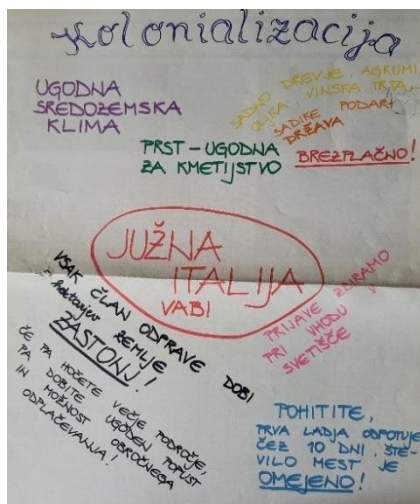 Kolonializacija
UGODNA
SREDOZEMSKA
KLIMA
SADNO DREVJE, AGRUMI,
OLJKA, VINSKA TRTA,
SADIKE PODARI
DRŽAVA
BREZPLAČNO!
PRST – UGODNA
ZA KMETIJSTVO
JUŽNA
ITALIJA
VABI
VSAK ČLAN ODPRAVE DOBI
ZEMLJE
ZASTONJ!
ČE PA HOČETE VEČJE PODROČJE,
PA DOBITE UGODEN POPUST
IN MOŽNOST OBROČNEGA
ODPLAČEVANJA!
PRIJAVE ZBIRAMO
PRI VHODU V
SVETIŠČE
POHITITE,
PRVA LADJA ODPOTUJE
ČEZ 10 DNI, ŠTE-
VILO MEST JE
OMEJENO!